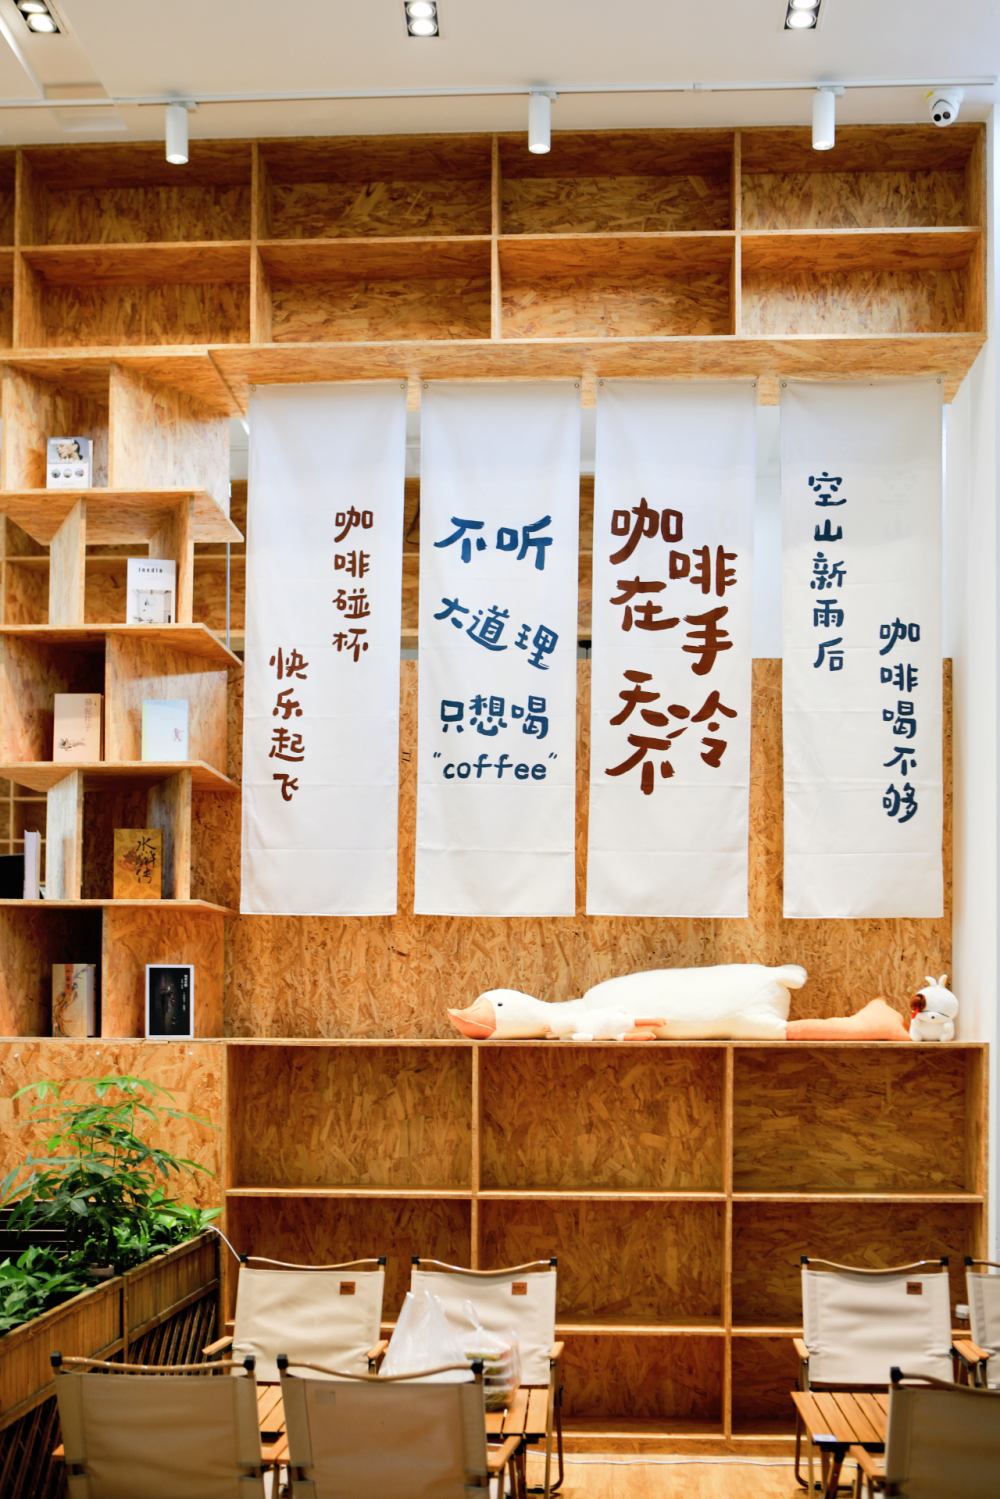 咖啡碰杯
快乐起飞
不听
大道理
只想喝
“coffee”
咖啡
在手
天冷
不
空山新雨后
咖啡喝不够
水浒传